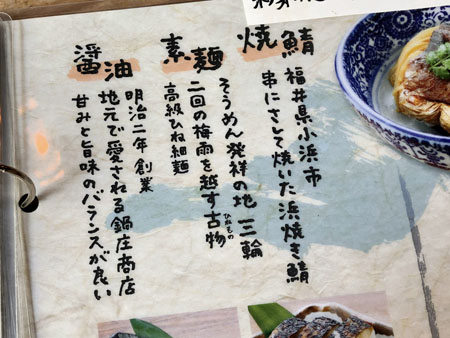 焼鯖
福井県小浜市
串にさして焼いた浜焼き鯖
素麺
そうめん発祥の地 三輪
二回の梅雨を越す古物
ひねもの
高級ひね細麺
醤油
明治二年 創業
地元で愛される鍋庄商店
甘みと旨味のバランスが良い